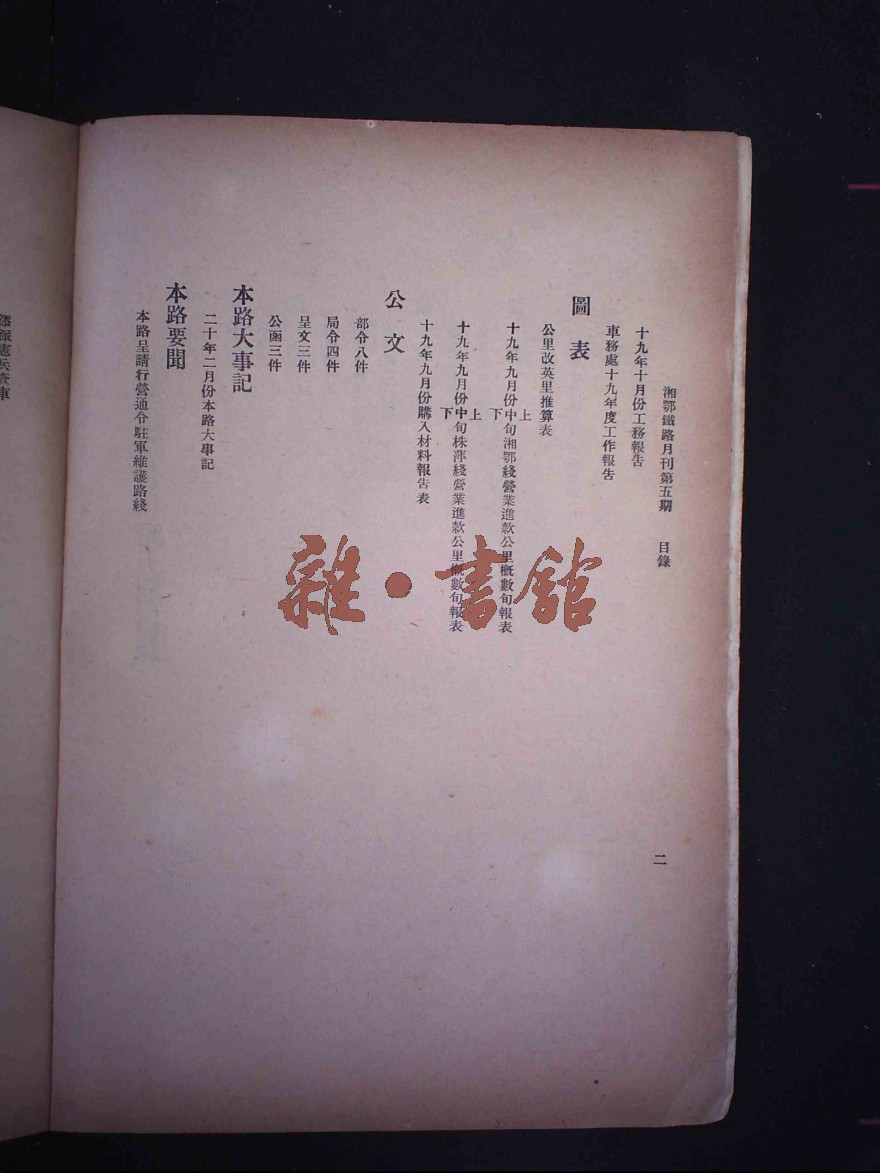 湘鄂鐵路月刊第五期 目錄
二
十九年十月份工務報告
車務處十九年度工作報告
圖表
公里改英里推算表
十九年九月份上中下旬湘鄂綫營業進款公里概數旬報表
十九年九月份上中下旬株萍綫營業進款公里概數旬報表
十九年九月份購入材料報告表
公文
部令八件
局令四件
呈文三件
公函三件
本路大事記
二十年二月份本路大事記
本路要聞
本路呈請行營通令駐軍維護路綫
派憲兵查車
雜·書館